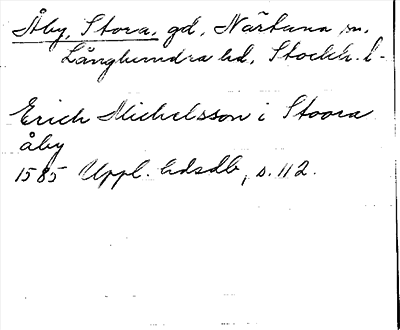 Åby, Stora, gd, Närtuna sn,
Långhundra hd, Stockh. l-
Erich Michelsson i Stoora
åby
1585 Uppl. hdsdb, s. 112.